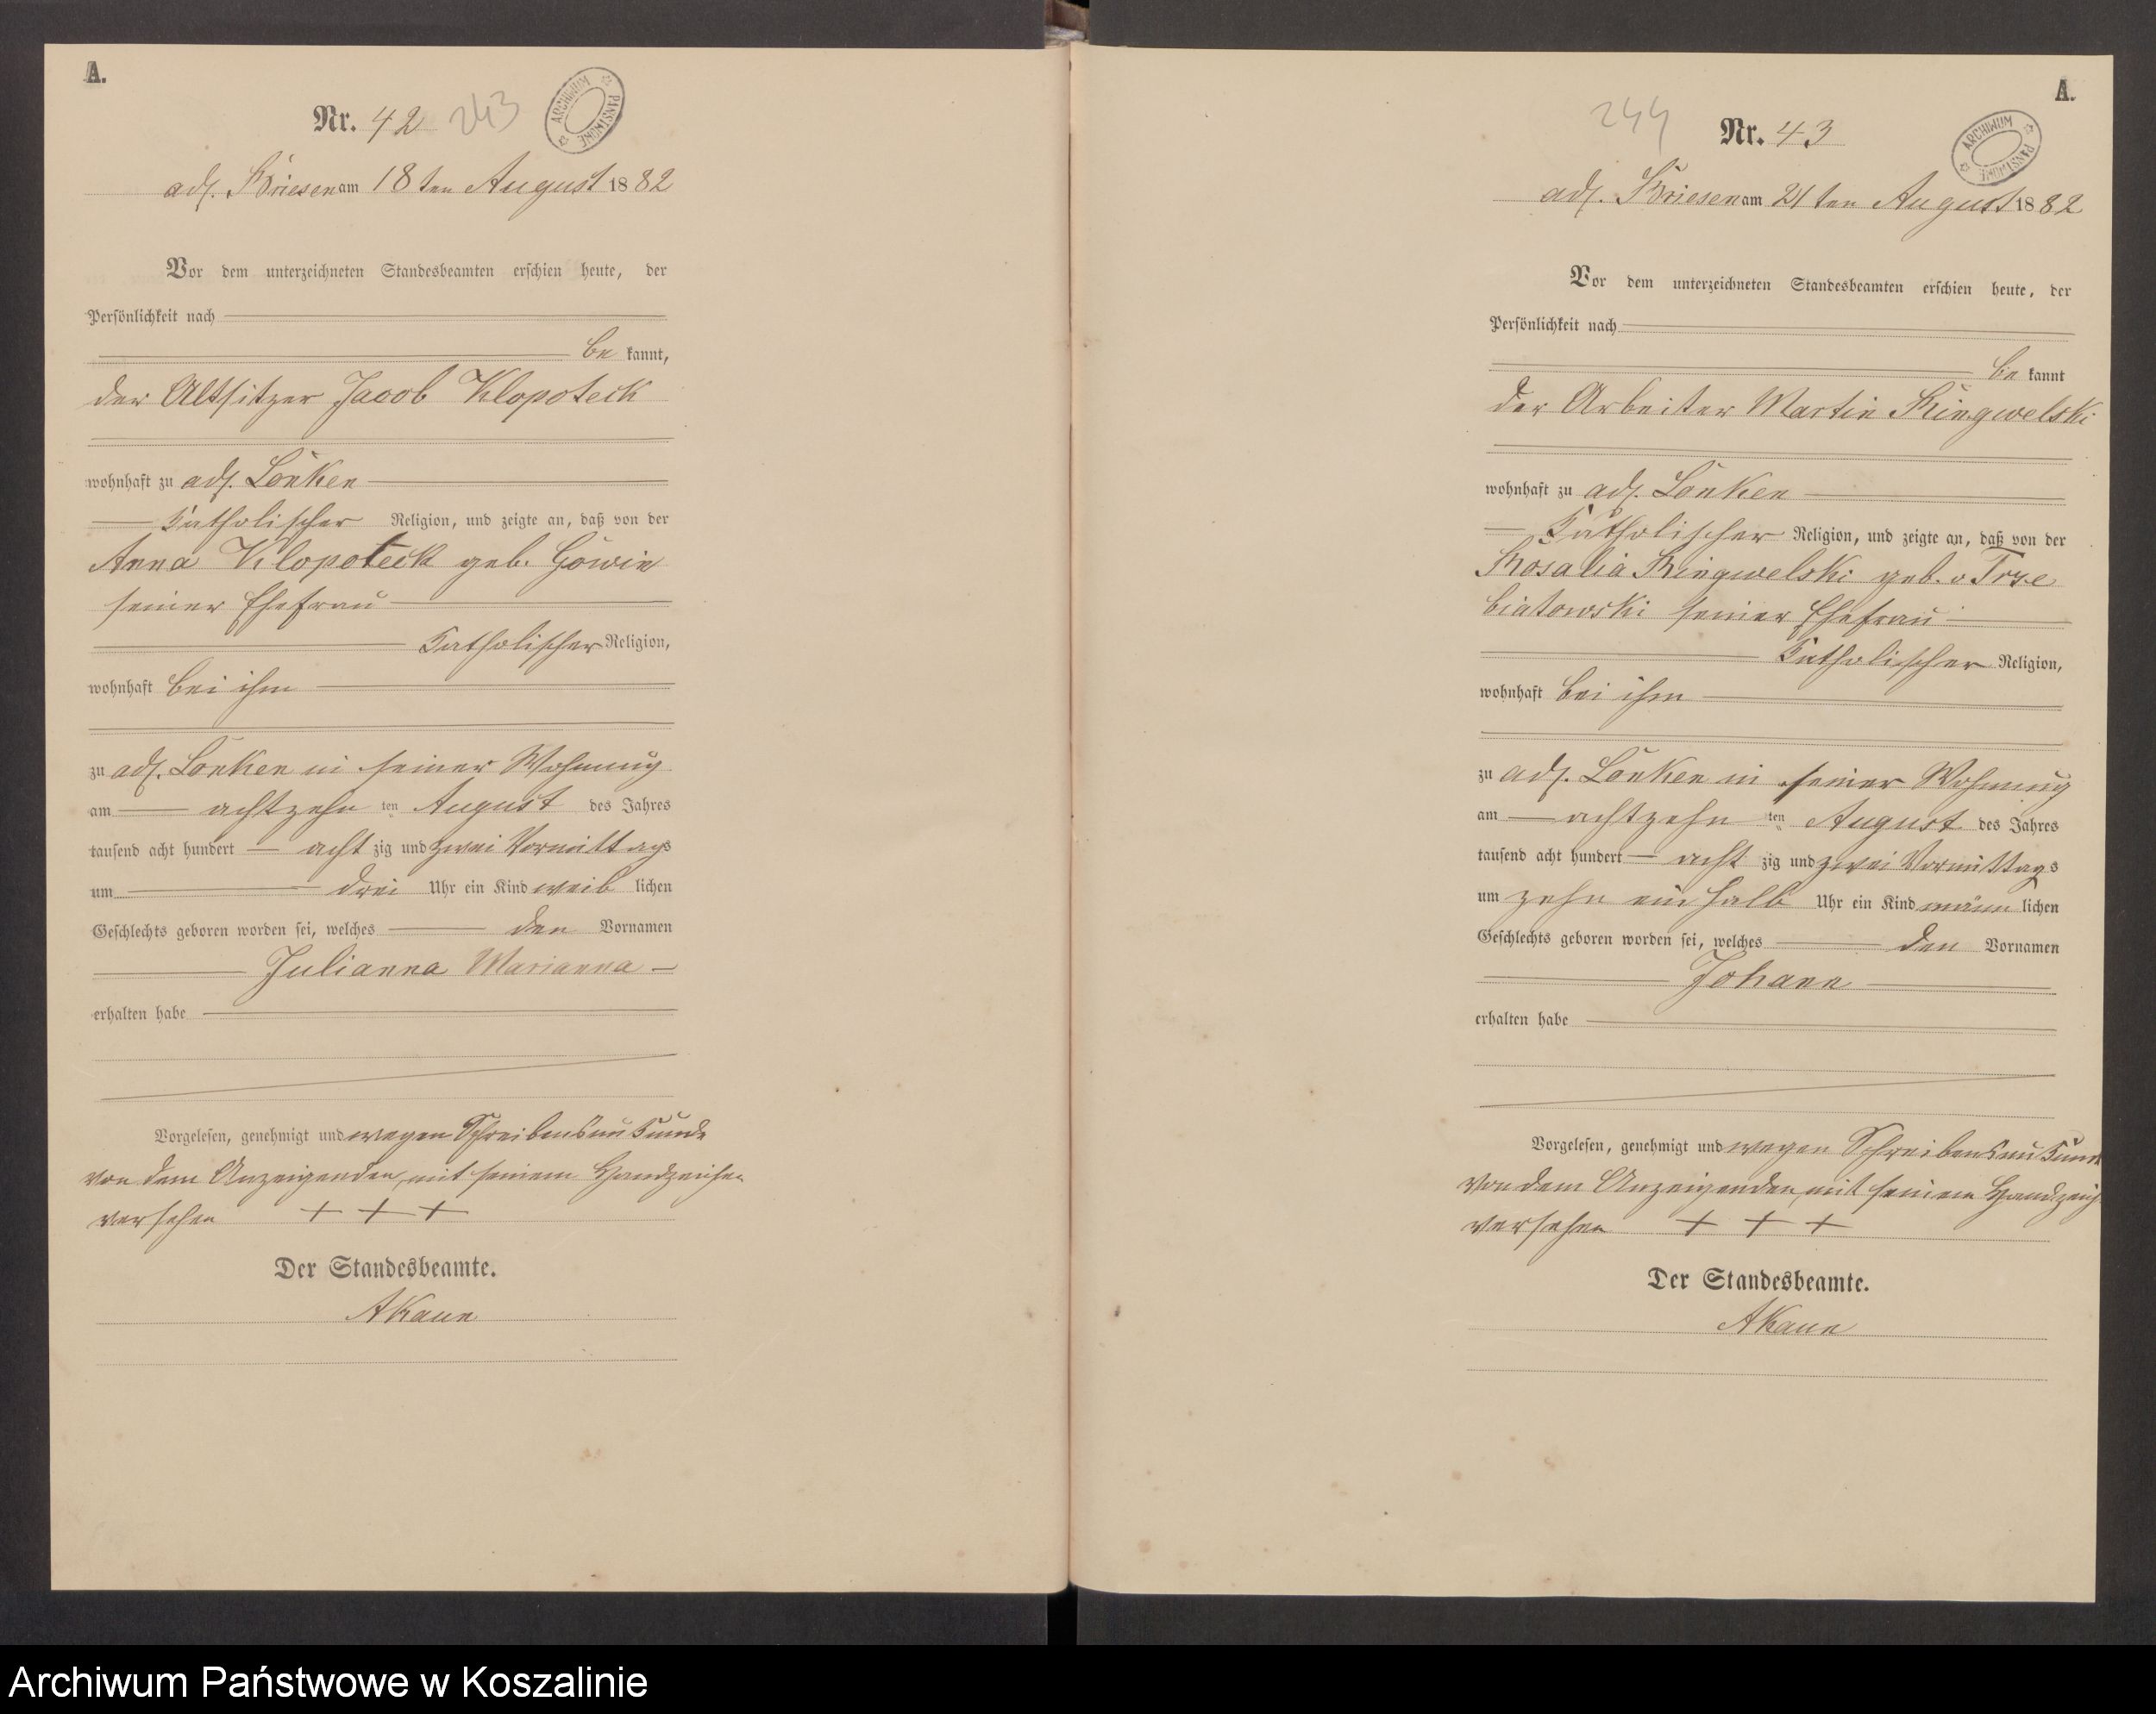 A.
Nr. 42 243
ARCHIWUM PAŃSTWOWE
adl. Briesen am 18ten August 1882
Vor dem unterzeichneten Standesbeamten erschien heute, der
Persönlichkeit nach
be kannt,
der Altsitzer Jacob Klopoteck
wohnhaft zu adl. Lonken
Katholischer Religion, und zeigte an, daß von der
Anna Klopoteck geb. Gowin
seiner Ehefrau
Katholischer Religion,
wohnhaft bei ihm
zu adl. Lonken in seiner Wohnung
am achtzehn ten August des Jahres
tausend acht hundert acht zig und zwei Vormittags
um drei Uhr ein Kind weib lichen
Geschlechts geboren worden sei, welches den Vornamen
Julianna Marianna
erhalten habe
Vorgelesen, genehmigt und wegen Schreibensunkunde
von dem Anzeigenden, mit seinem Handzeichen
versehen + + +
Der Standesbeamte.
AKaun
A.
244 Nr. 43
ARCHIWUM PAŃSTWOWE
adl. Briesen am 21ten August 1882
Vor dem unterzeichneten Standesbeamten erschien heute, der
Persönlichkeit nach
be kannt
der Arbeiter Martin Ringwelski
wohnhaft zu adl. Lonken
Katholischer Religion, und zeigte an, daß von der
Rosalia Ringwelski geb. v Trze
biatowski seiner Ehefrau
Katholischer Religion,
wohnhaft bei ihm
zu adl. Lonken in seiner Wohnung
am achtzehn ten August des Jahres
tausend acht hundert acht zig und zwei Vormittags
um zehn ein halb Uhr ein Kind männ lichen
Geschlechts geboren worden sei, welches den Vornamen
Johann
erhalten habe
Vorgelesen, genehmigt und wegen Schreibensunkunde
von dem Anzeigenden, mit seinem Handzeich
versehen + + +
Der Standesbeamte.
AKaun
Archiwum Państwowe w Koszalinie